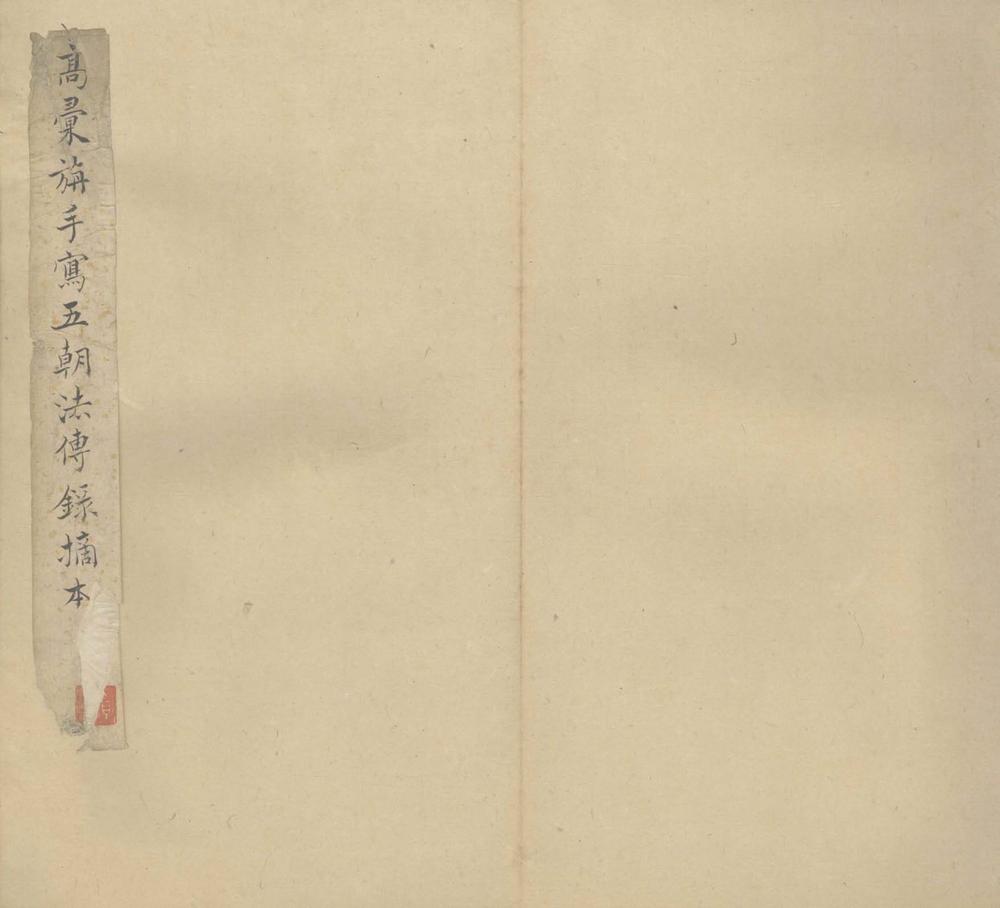 高彙旃手寫五朝法傳錄摘本